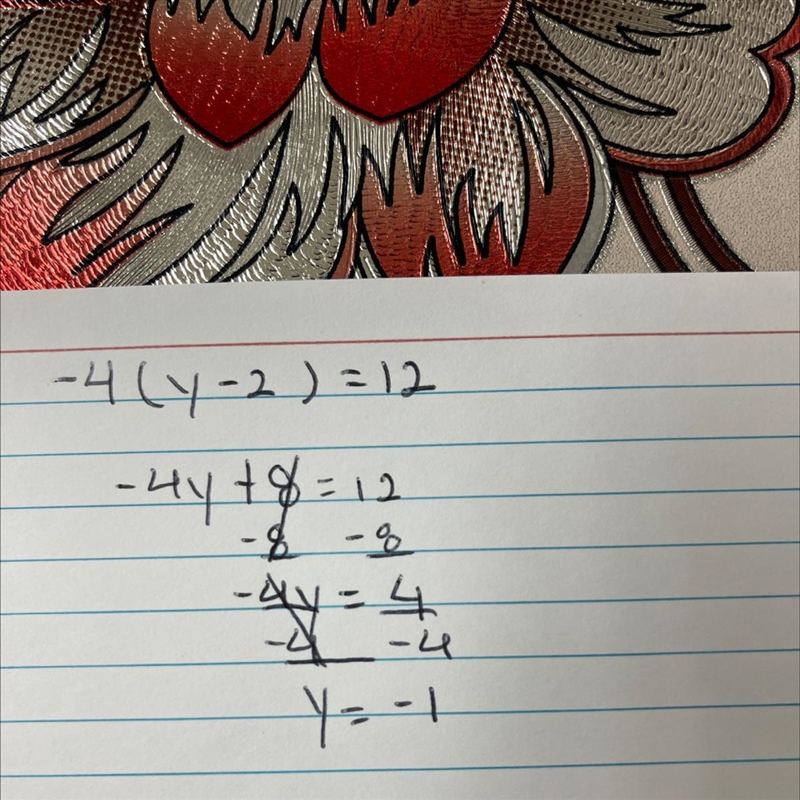 -4(y-2)=12
-4y+8=12
-8 -8
-4y = 4
-4 -4
y = -1